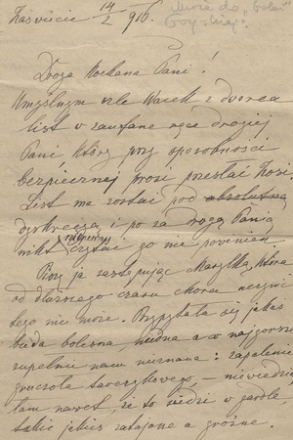 Zaświecie 14/2 916.
Droga Kochana Pani!
Umyślnym śle Wacek z dworca
list w zaufane ręce drogiej
Pani, który przy sposobności
bezpiecznej prosi przesłać Zosi.
List ma zostać pod absolutną
dyskrecją i po za drogą Panią
nikt czytać go nie powinien
Piszę ja zastępując Marylkę, która
od dłuższego czasu chora uczynić
tego nie może. Przyplątała się jakaś
bieda bolesna, nudna a w najgorszem
zupełnie nam nieznana: zapalenie
gruczołu tarczykowego, — nie wiedzia
tam nawet, że to siedzi w gardle,
takie jakieś zatajone a groźne.